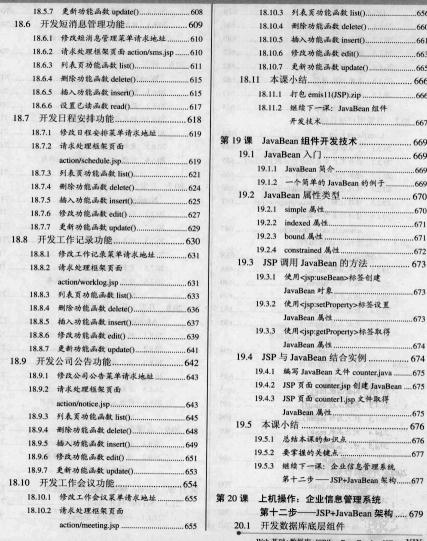 18.5.7 更新功能函数 update()......608
18.6 开发短消息管理功能......609
18.6.1 修改短消息管理菜单请求地址......610
18.6.2 请求处理框架页面 action/sms.jsp......610
18.6.3 列表页功能函数 list()......611
18.6.4 删除功能函数 delete()......615
18.6.5 插入功能函数 insert()......615
18.6.6 设置已读功能函数 read()......617
18.7 开发日程安排功能......618
18.7.1 修改日程安排菜单请求地址......619
18.7.2 请求处理框架页面
action/schedule.jsp......619
18.7.3 列表页功能函数 list()......621
18.7.4 删除功能函数 delete()......624
18.7.5 插入功能函数 insert()......625
18.7.6 修改功能函数 edit()......627
18.7.7 更新功能函数 update()......629
18.8 开发工作记录功能......630
18.8.1 修改工作记录菜单请求地址......631
18.8.2 请求处理框架页面
action/worklog.jsp......631
18.8.3 列表页功能函数 list()......633
18.8.4 删除功能函数 delete()......636
18.8.5 插入功能函数 insert()......637
18.8.6 修改功能函数 edit()......639
18.8.7 更新功能函数 update()......641
18.9 开发公司公告功能......642
18.9.1 修改公司公告菜单请求地址......643
18.9.2 请求处理框架页面
action/notice.jsp......643
18.9.3 列表页功能函数 list()......645
18.9.4 删除功能函数 delete()......648
18.9.5 插入功能函数 insert()......649
18.9.6 修改功能函数 edit()......651
18.9.7 更新功能函数 update()......653
18.10 开发工作会议功能......654
18.10.1 修改工作会议菜单请求地址......655
18.10.2 请求处理框架页面
action/meeting.jsp......655
18.10.3 列表页功能函数 list()......656
18.10.4 删除功能函数 delete()......660
18.10.5 插入功能函数 insert()......661
18.10.6 修改功能函数 edit()......663
18.10.7 更新功能函数 update()......665
18.11 本课小结......666
18.11.1 打包 emis11(JSP).zip......666
18.11.2 继续下一课：JavaBean 组件
开发技术......667
第 19 课 JavaBean 组件开发技术......669
19.1 JavaBean 入门......669
19.1.1 JavaBean 简介......669
19.1.2 一个简单的 JavaBean 的例子......669
19.2 JavaBean 属性类型......670
19.2.1 simple 属性......670
19.2.2 indexed 属性......671
19.2.3 bound 属性......671
19.2.4 constrained 属性......672
19.3 JSP 调用 JavaBean 的方法......673
19.3.1 使用<jsp:useBean>标签创建
JavaBean 对象......673
19.3.2 使用<jsp:setProperty>标签设置
JavaBean 属性......673
19.3.3 使用<jsp:getProperty>标签取得
JavaBean 属性......674
19.4 JSP 与 JavaBean 结合实例......674
19.4.1 编写 JavaBean 文件 counter.java......675
19.4.2 JSP 页面 counter.jsp 创建 JavaBean....675
19.4.3 JSP 页面 counter1.jsp 文件取得
JavaBean 属性......675
19.5 本课小结......676
19.5.1 总结本课的知识点......676
19.5.2 要掌握的关键点......677
19.5.3 继续下一课：企业信息管理系统
第十二步——JSP+JavaBean 架构......677
第 20 课 上机操作：企业信息管理系统
第十二步——JSP+JavaBean 架构......679
20.1 开发数据库底层组件